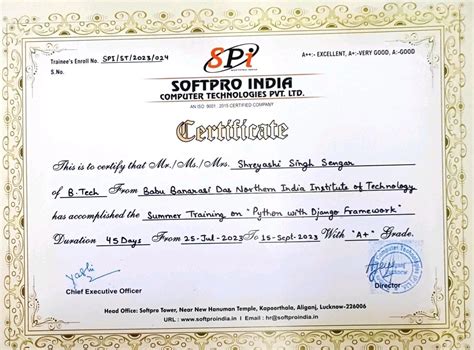 Trainee's Enroll No. SPI/ST/2023/024
S.No.
SPi
A++:- EXCELLENT, A+:-VERY GOOD, A:-GOOD
SOFTPRO INDIA
COMPUTER TECHNOLOGIES PVT. LTD.
AN ISO 9001 : 2015 CERTIFIED COMPANY
Certificate
This is to certify that Mr./Ms./Mrs. Shreyashi Singh Sengar
of B.Tech From Babu Banarasi Das Northern India Institute of Technology
has accomplished the Summer Training on "Python with Django Framework"
Duration 45 Days From 25-Jul-2023 To 15-Sept-2023 With "A+" Grade.
Chief Executive Officer
Director
Head Office: Soft Pro Tower, Near New Hanuman Temple, Kapoorthala, Aliganj, Lucknow-226006
URL : www.softproindia.in | Email : hr@softproindia.in